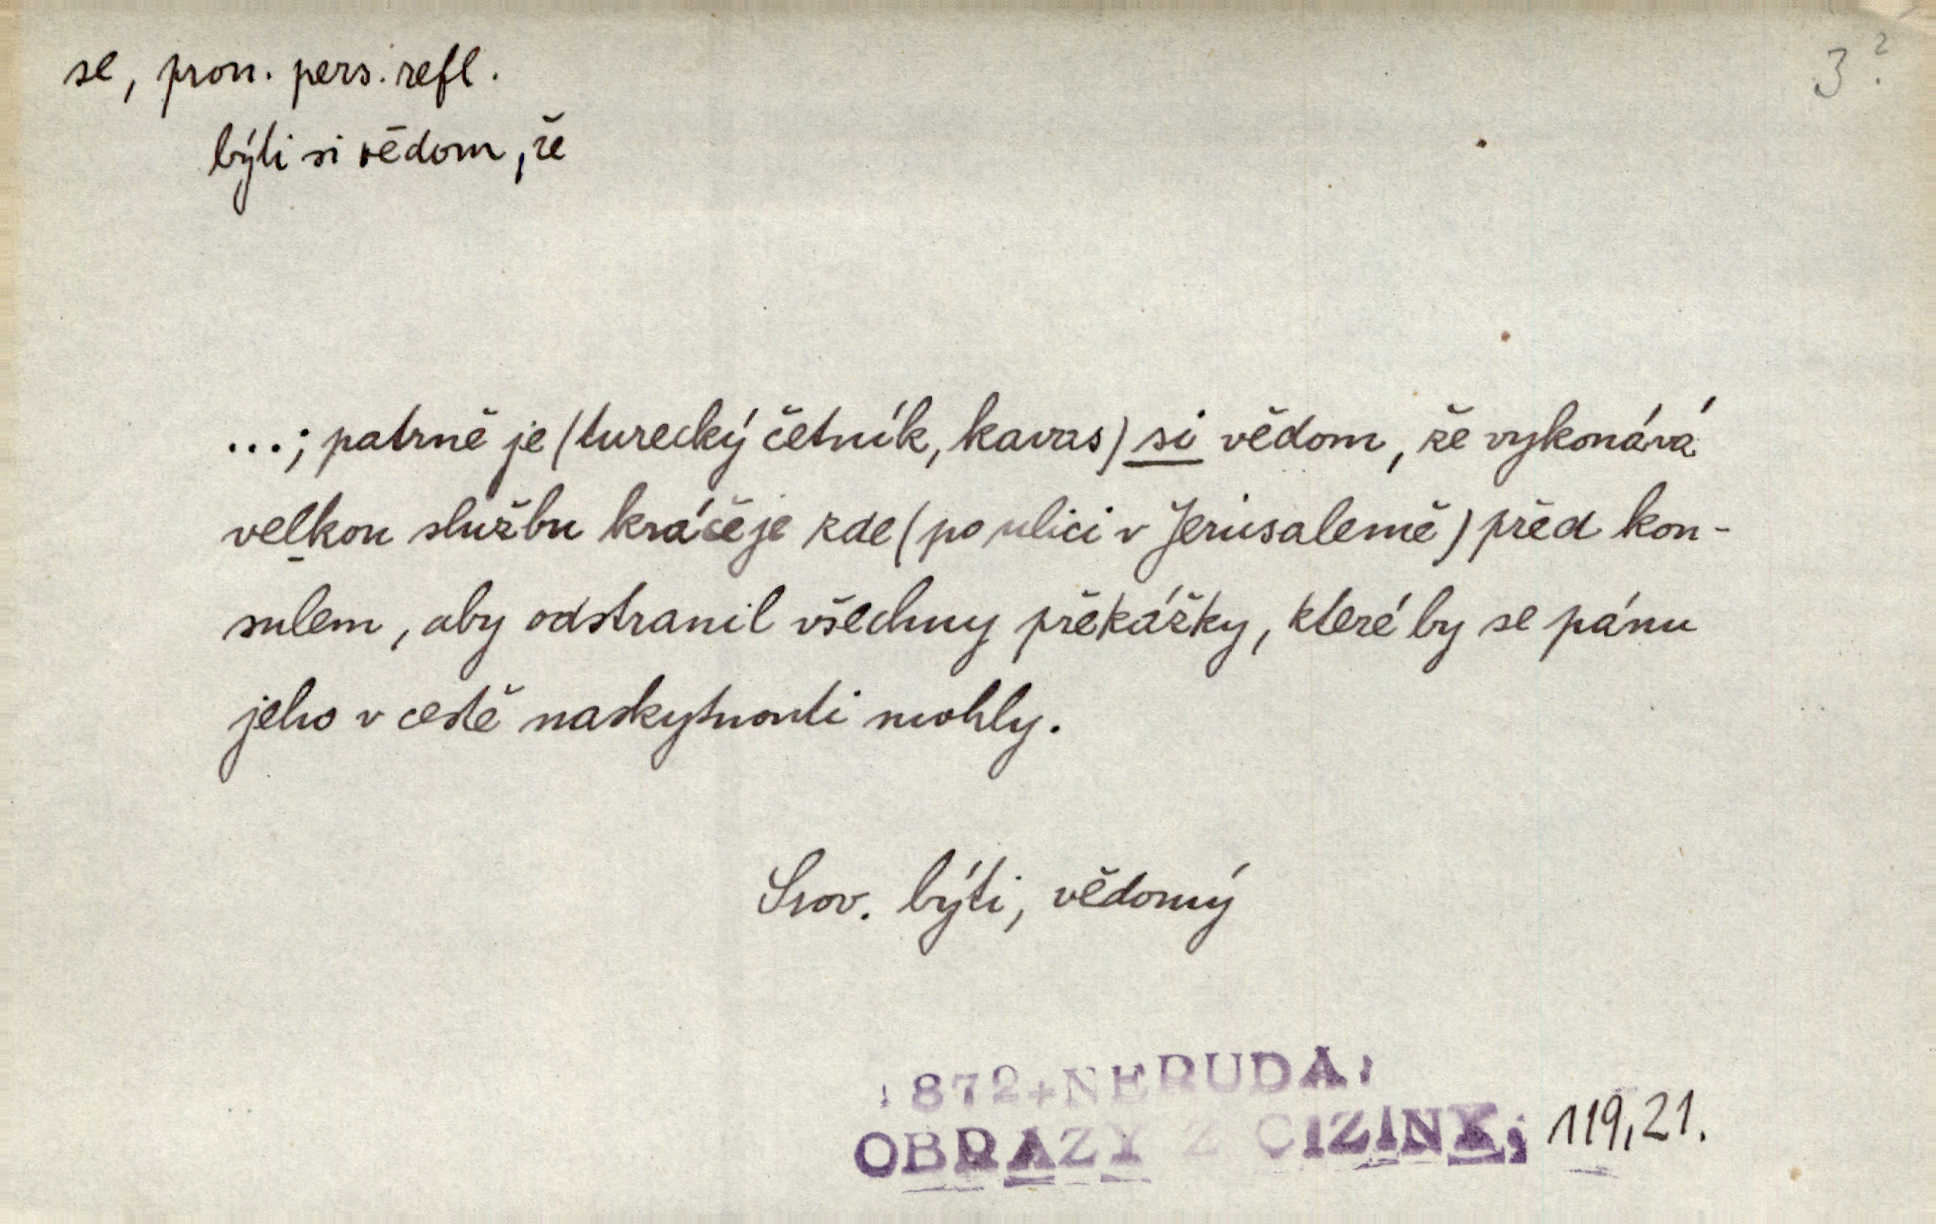 se, pron. pers. refl.
3?
býti si vědom, že
...; patrně je (turecký četník, kavas) si vědom, že vykonává
velkou službu kráčeje zde (po ulici v Jerusalemě) před kon-
sulem, aby odstranil všechny překážky, které by se pánu
jeho v cestě naskytnouti mohly.
Srov. býti, vědomý
1872+NERUDA,
OBRAZY Z CIZINY; 119,21.